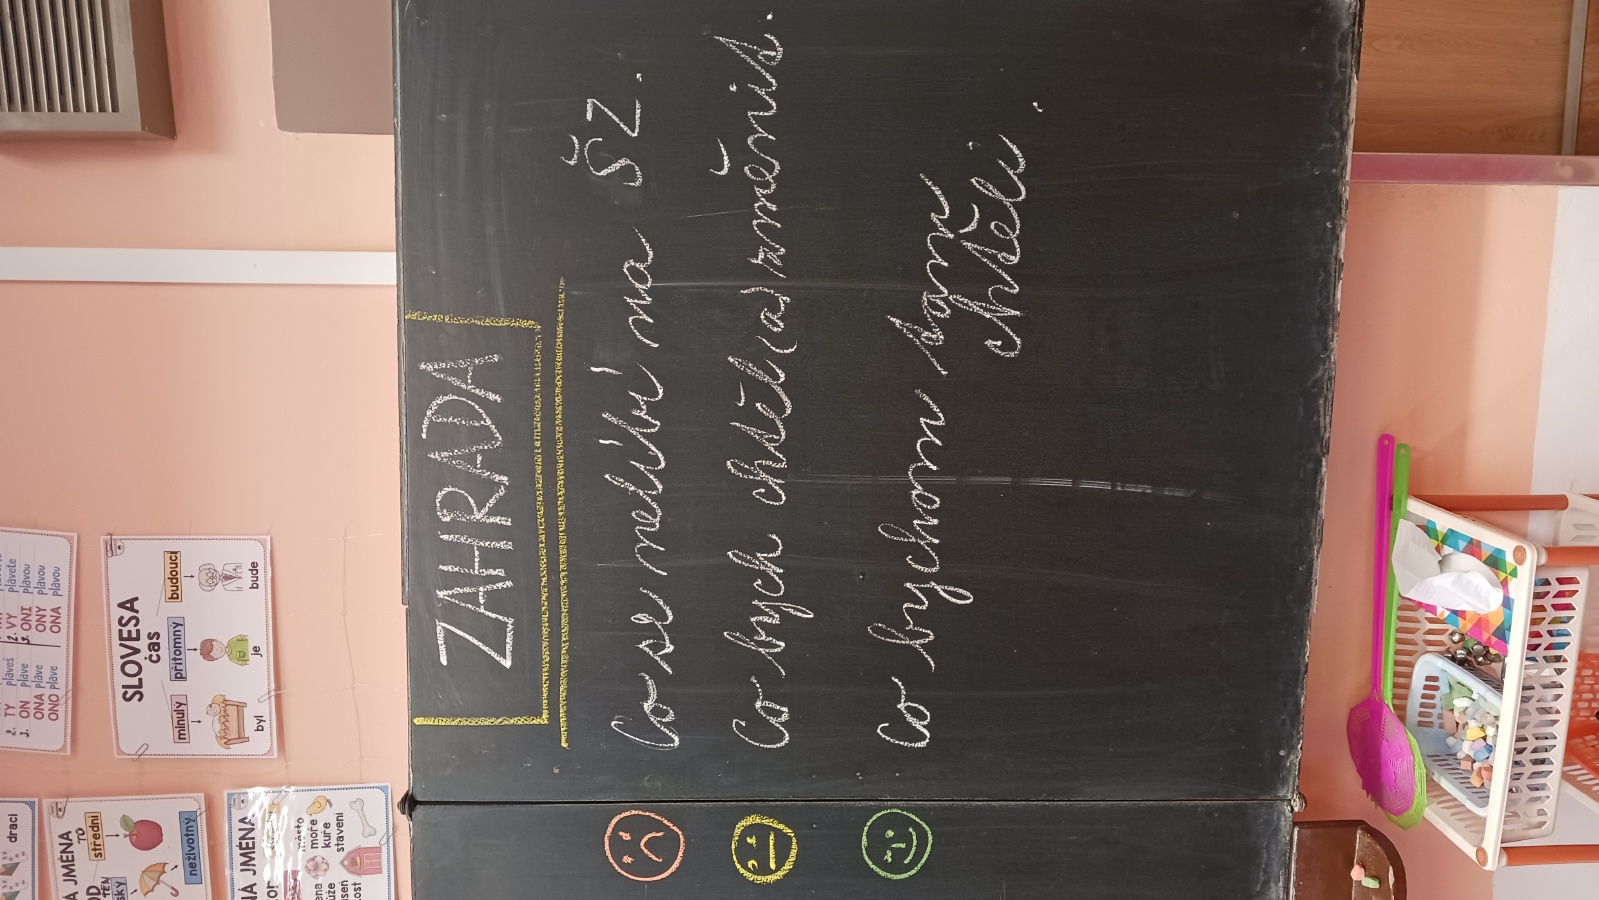 ZAHRADA
Co se nelíbí na ŠZ.
Co bych chtěl(a) změnit.
Co bychom tam
chtěli.
SLOVESA
čas
minulý přítomný budoucí
byl je bude
2. TY plaveš 2. VY plavete
3. ON plave 3. ONI plavou
ONA plave ONY plavou
ONO plave ONA plavou
draci
JMÉNA
TO
střední
neživotný
JMÉNA
město
moře
kuře
stavení